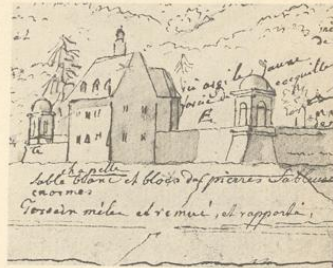 ici assi le jaune
coquille
E
chapelle
sable blanc et blocs des pierres sableuses
enormes
Terrain mélée et remué, et rapporté,